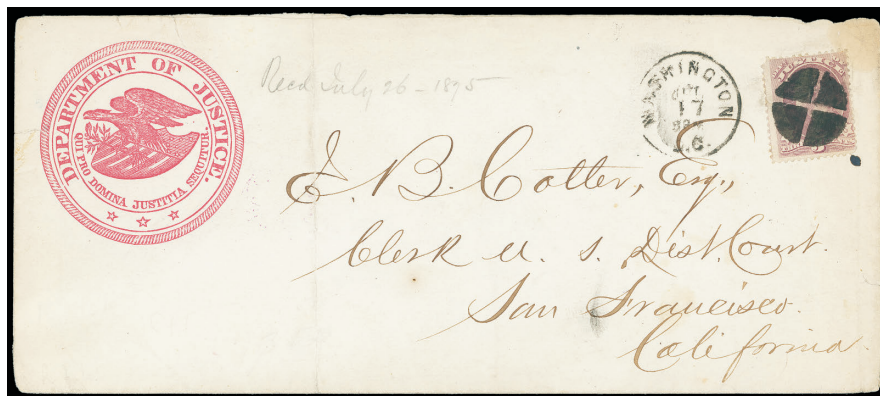 DEPARTMENT OF JUSTICE.
QUI PRO DOMINA JUSTITIA SEQUITUR.
Recd July 26 - 1875
WASHINGTON
JUL
17
D.C.
J. B. Cotter, Esq.,
Clerk U. S. Dist. Court.
San Francisco.
California.